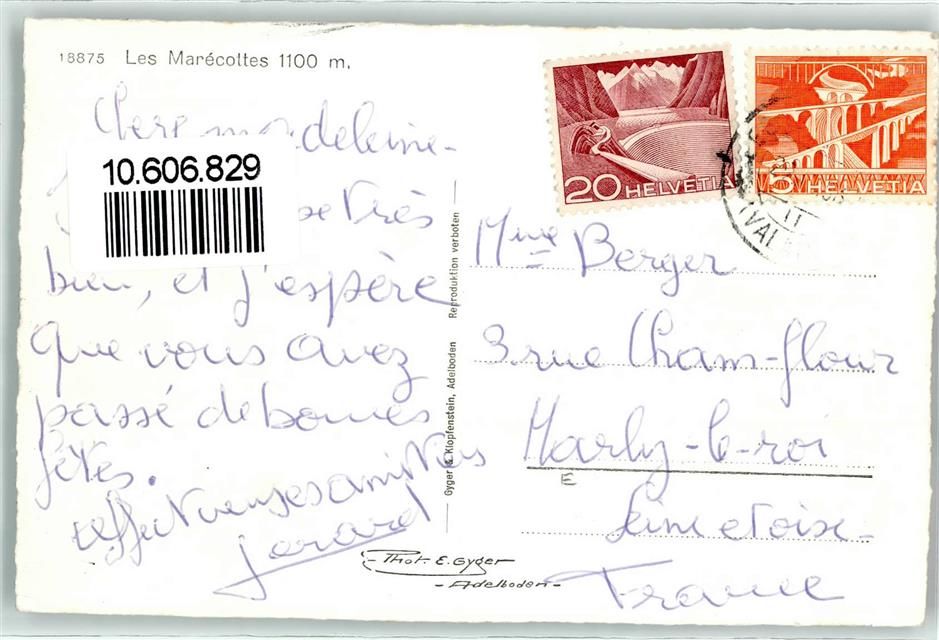 18875 Les Marécottes 1100 m.
Chere madeleine -
10.606.829
se très
bien, et j'espère
que vous avez
passé de bonnes
fêtes.
affectueuses amitiés
Gérard
Reproduktion verboten
Gyger & Klopfenstein, Adelboden
Phot. E. Gyger
- Adelboden -
20 HELVETIA
5 HELVETIA
(VAL
Mme Berger
3 rue Cham-flour
Marly-le-roi
E
Seine et oise -
France